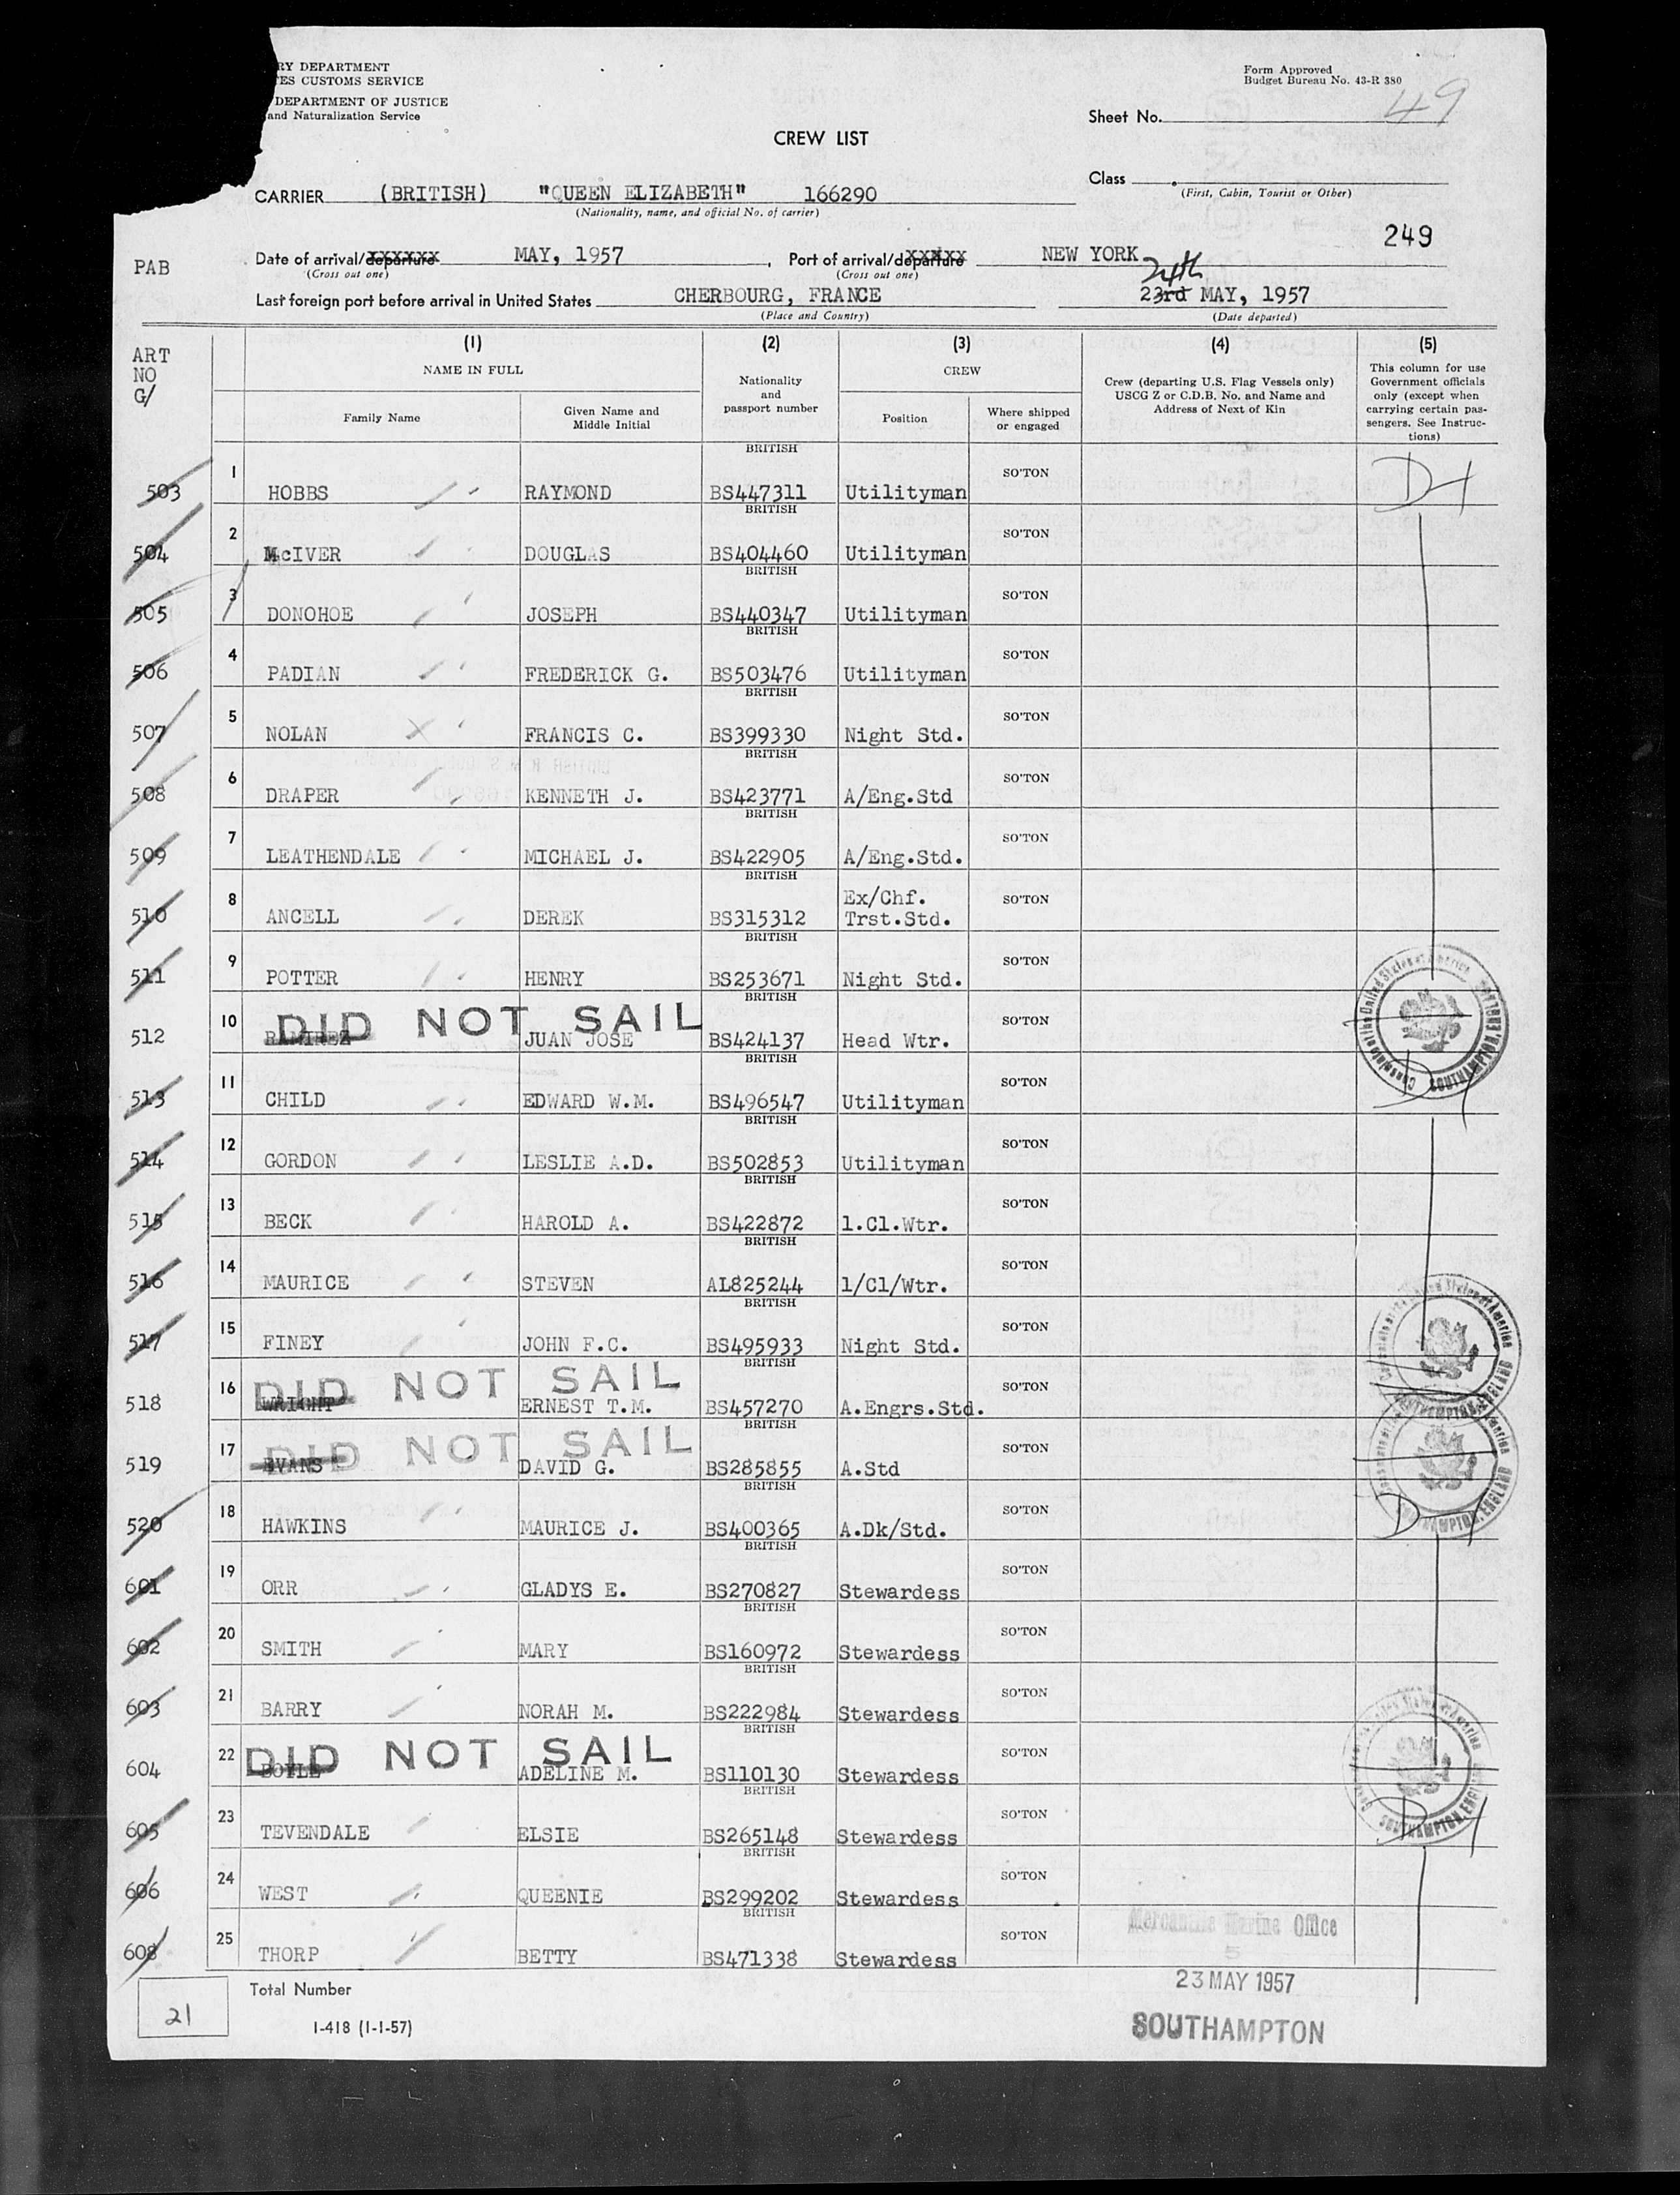 RY DEPARTMENT
ES CUSTOMS SERVICE
DEPARTMENT OF JUSTICE
and Naturalization Service
Form Approved
Budget Bureau No. 43-R 380
Sheet No. 49
CREW LIST
Class
(First, Cabin, Tourist or Other)
CARRIER (BRITISH) "QUEEN ELIZABETH" 166290
(Nationality, name, and official No. of carrier)
249
PAB
Date of arrival/departure MAY, 1957, Port of arrival/departure NEW YORK
(Cross out one) (Cross out one)
24th
Last foreign port before arrival in United States CHERBOURG, FRANCE 23rd MAY, 1957
(Place and Country) (Date departed)
ART
NO
G/
(1) (2) (3) (4) (5)
NAME IN FULL
Family Name
Given Name and
Middle Initial
Nationality
and
passport number
CREW
Position
Where shipped
or engaged
Crew (departing U.S. Flag Vessels only)
USCG Z or C.D.B. No. and Name and
Address of Next of Kin
This column for use
Government officials
only (except when
carrying certain pas-
sengers. See Instruc-
tions)
BRITISH
503 1 HOBBS RAYMOND BS447311 Utilityman SO'TON
BRITISH
504 2 McIVER DOUGLAS BS404460 Utilityman SO'TON
BRITISH
505 3 DONOHOE JOSEPH BS440347 Utilityman SO'TON
BRITISH
506 4 PADIAN FREDERICK G. BS503476 Utilityman SO'TON
BRITISH
507 5 NOLAN FRANCIS C. BS399330 Night Std. SO'TON
BRITISH
508 6 DRAPER KENNETH J. BS423771 A/Eng.Std SO'TON
BRITISH
509 7 LEATHENDALE MICHAEL J. BS422905 A/Eng.Std. SO'TON
BRITISH
Ex/Chf.
510 8 ANCELL DEREK BS315312 Trst.Std. SO'TON
BRITISH
511 9 POTTER HENRY BS253671 Night Std. SO'TON
BRITISH
DID NOT SAIL
512 10 RAMIREZ JUAN JOSE BS424137 Head Wtr. SO'TON
BRITISH
513 11 CHILD EDWARD W.M. BS496547 Utilityman SO'TON
BRITISH
514 12 GORDON LESLIE A.D. BS502853 Utilityman SO'TON
BRITISH
515 13 BECK HAROLD A. BS422872 1.Cl.Wtr. SO'TON
BRITISH
516 14 MAURICE STEVEN AL825244 1/Cl/Wtr. SO'TON
BRITISH
517 15 FINEY JOHN F.C. BS495933 Night Std. SO'TON
BRITISH
DID NOT SAIL
518 16 WRIGHT ERNEST T.M. BS457270 A.Engrs.Std. SO'TON
BRITISH
DID NOT SAIL
519 17 EVANS DAVID G. BS285855 A.Std SO'TON
BRITISH
520 18 HAWKINS MAURICE J. BS400365 A.Dk/Std. SO'TON
BRITISH
601 19 ORR GLADYS E. BS270827 Stewardess SO'TON
BRITISH
602 20 SMITH MARY BS160972 Stewardess SO'TON
BRITISH
603 21 BARRY NORAH M. BS222984 Stewardess SO'TON
BRITISH
DID NOT SAIL
604 22 BOYLE ADELINE M. BS110130 Stewardess SO'TON
BRITISH
605 23 TEVENDALE ELSIE BS265148 Stewardess SO'TON
BRITISH
606 24 WEST QUEENIE BS299202 Stewardess SO'TON
BRITISH
608 25 THORP BETTY BS471338 Stewardess SO'TON
Mercantile Marine Office
5
23 MAY 1957
SOUTHAMPTON
21 Total Number
I-418 (1-1-57)